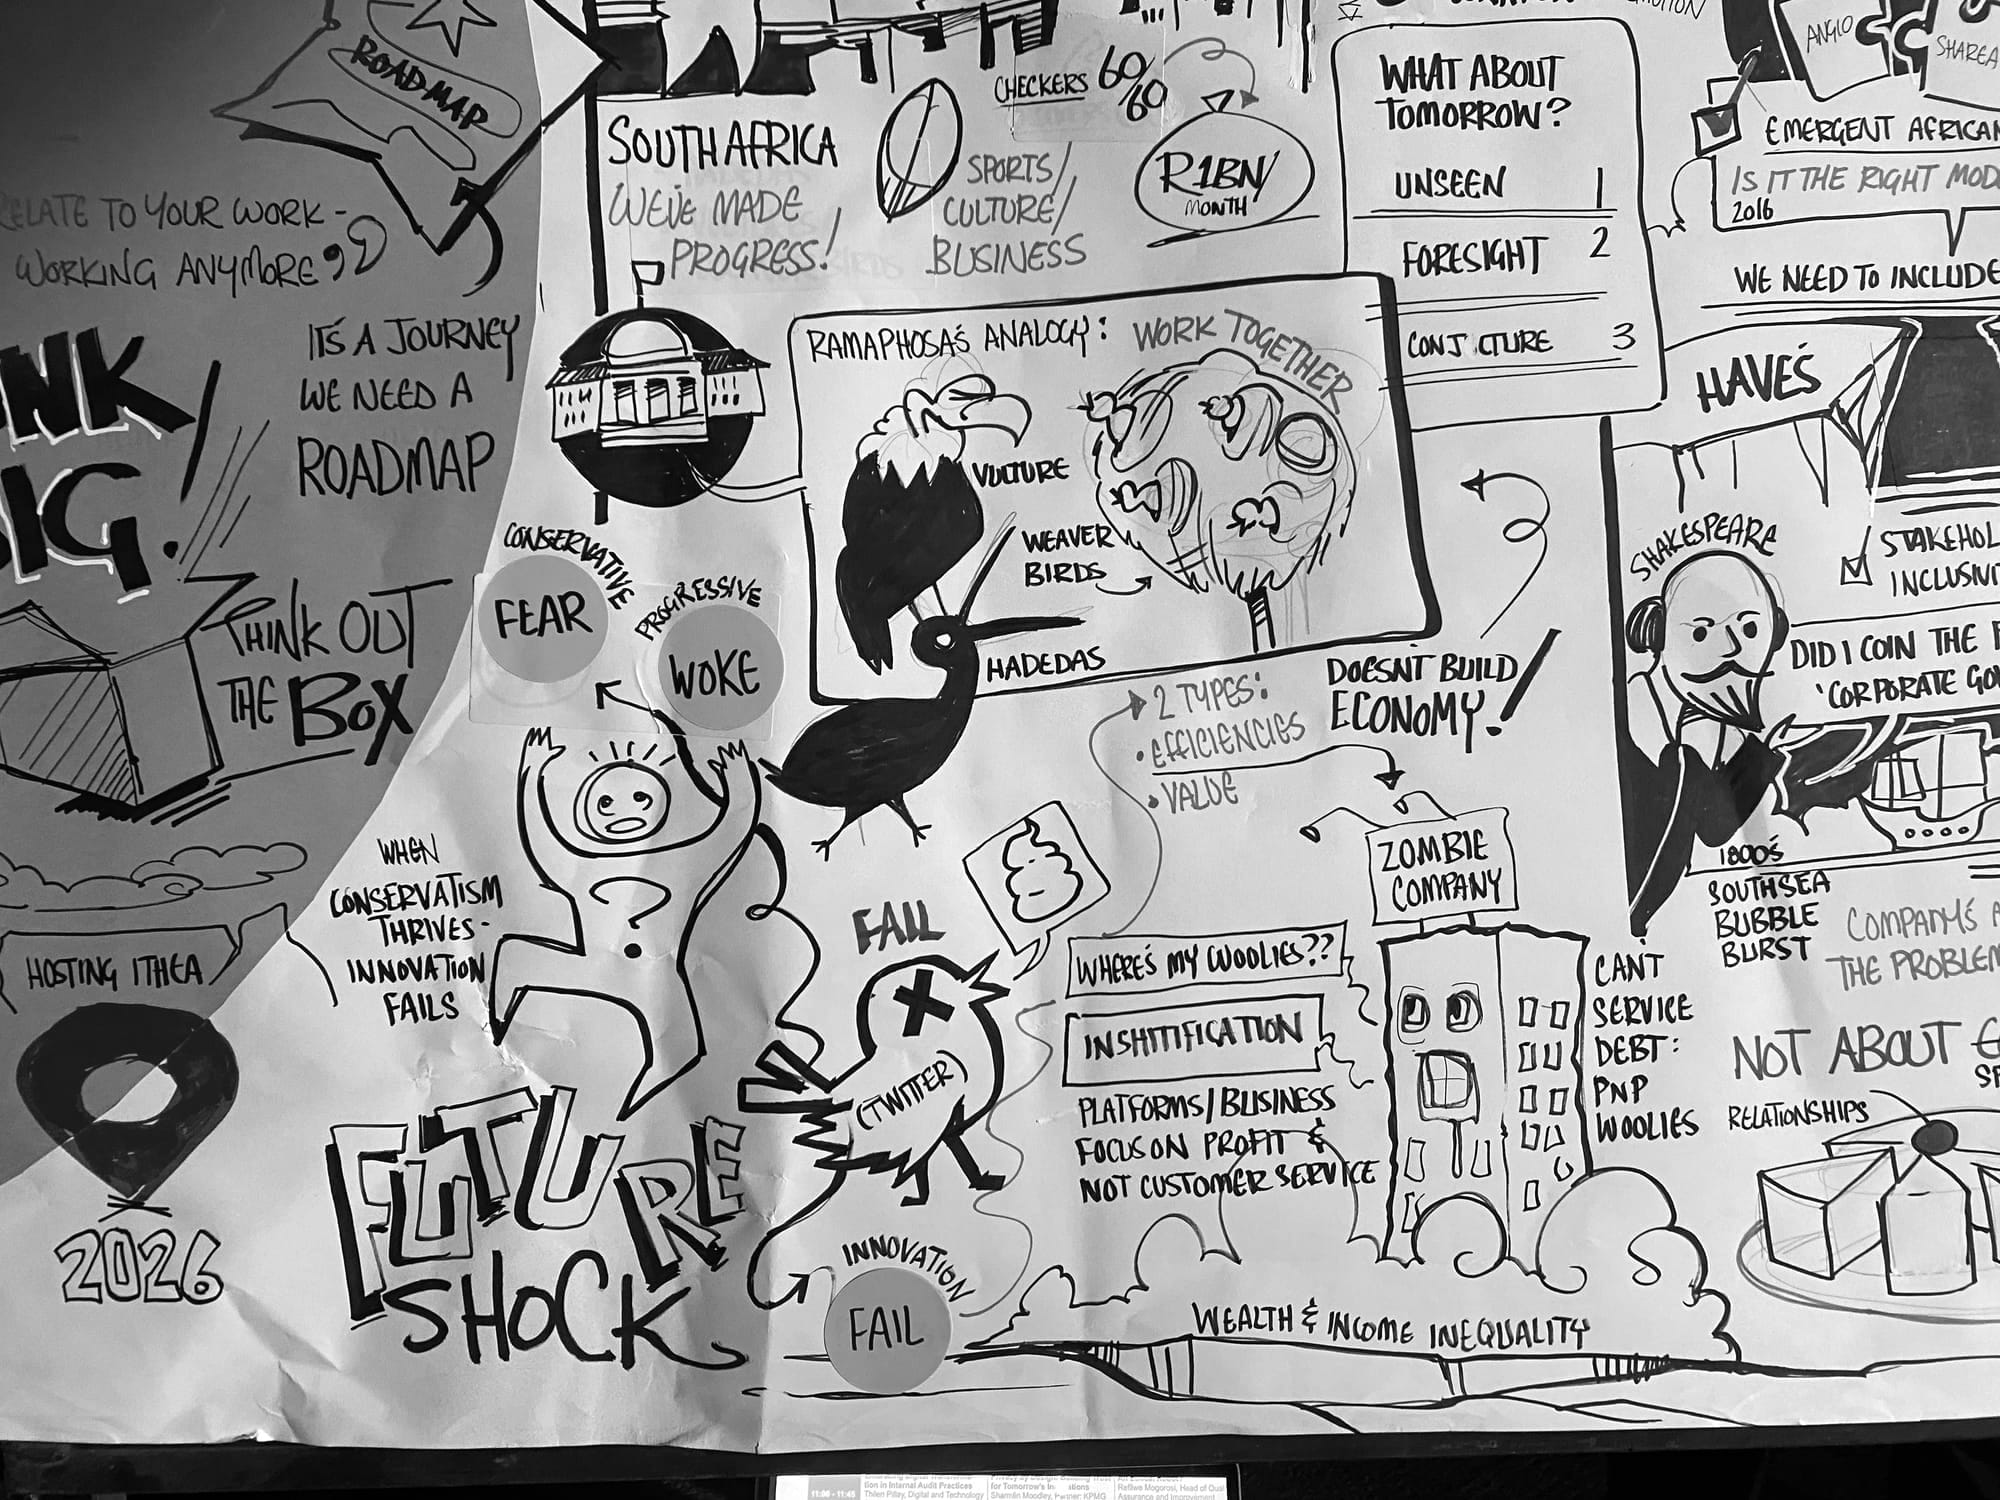 ROADMAP
RELATE TO YOUR WORK -
WORKING ANYMORE?
IT'S A JOURNEY
WE NEED A
ROADMAP
THINK OUT
THE BOX
HOSTING ITHEA
2026
SOUTH AFRICA
WE'VE MADE
PROGRESS!
SPORTS/
CULTURE/
BUSINESS
CHECKERS 60/60
R1BN/
MONTH
WHAT ABOUT
TOMORROW?
UNSEEN 1
FORESIGHT 2
3
ANGLO
EMERGENT AFRICAN
IS IT THE RIGHT
2016
WE NEED TO INCLUDE
HAVE'S
RAMAPHOSA'S ANALOGY: WORK TOGETHER
VULTURE
WEAVER
BIRDS
HADEDAS
CONSERVATIVE
FEAR
PROGRESSIVE
WOKE
WHEN
CONSERVATISM
THRIVES -
INNOVATION
FAILS
FUTURE
SHOCK
FAIL
(TWITTER)
INNOVATION
FAIL
2 TYPES:
• EFFICIENCIES
• VALUE
DOESN'T BUILD
ECONOMY!
ZOMBIE
COMPANY
WHERE'S MY WOOLIES??
INSHITIFICATION
PLATFORMS/BUSINESS
FOCUS ON PROFIT &
NOT CUSTOMER SERVICE
CAN'T
SERVICE
DEBT:
PNP
WOOLIES
WEALTH & INCOME INEQUALITY
SHAKESPEARE
DID I COIN THE
'CORPORATE
1800'S
SOUTHSEA
BUBBLE
BURST
COMPANY'S
THE PROBLEM
NOT ABOUT
RELATIONSHIPS
11:00 - 11:45
tion in Internal Audit Practices
Thilen Pillay, Digital and Technology
Sharmlin Moodley, Partner: KPMG
Refilwe Mogorosi, Head of
Assurance and Improvement